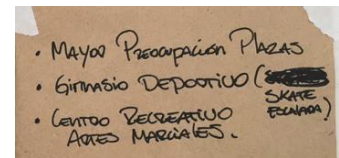 • Mayor Preocupación Plazas
• Gimnasio Deportivo (
SKATE
ESCALADA)
• Centro Recreativo
Artes Marciales.